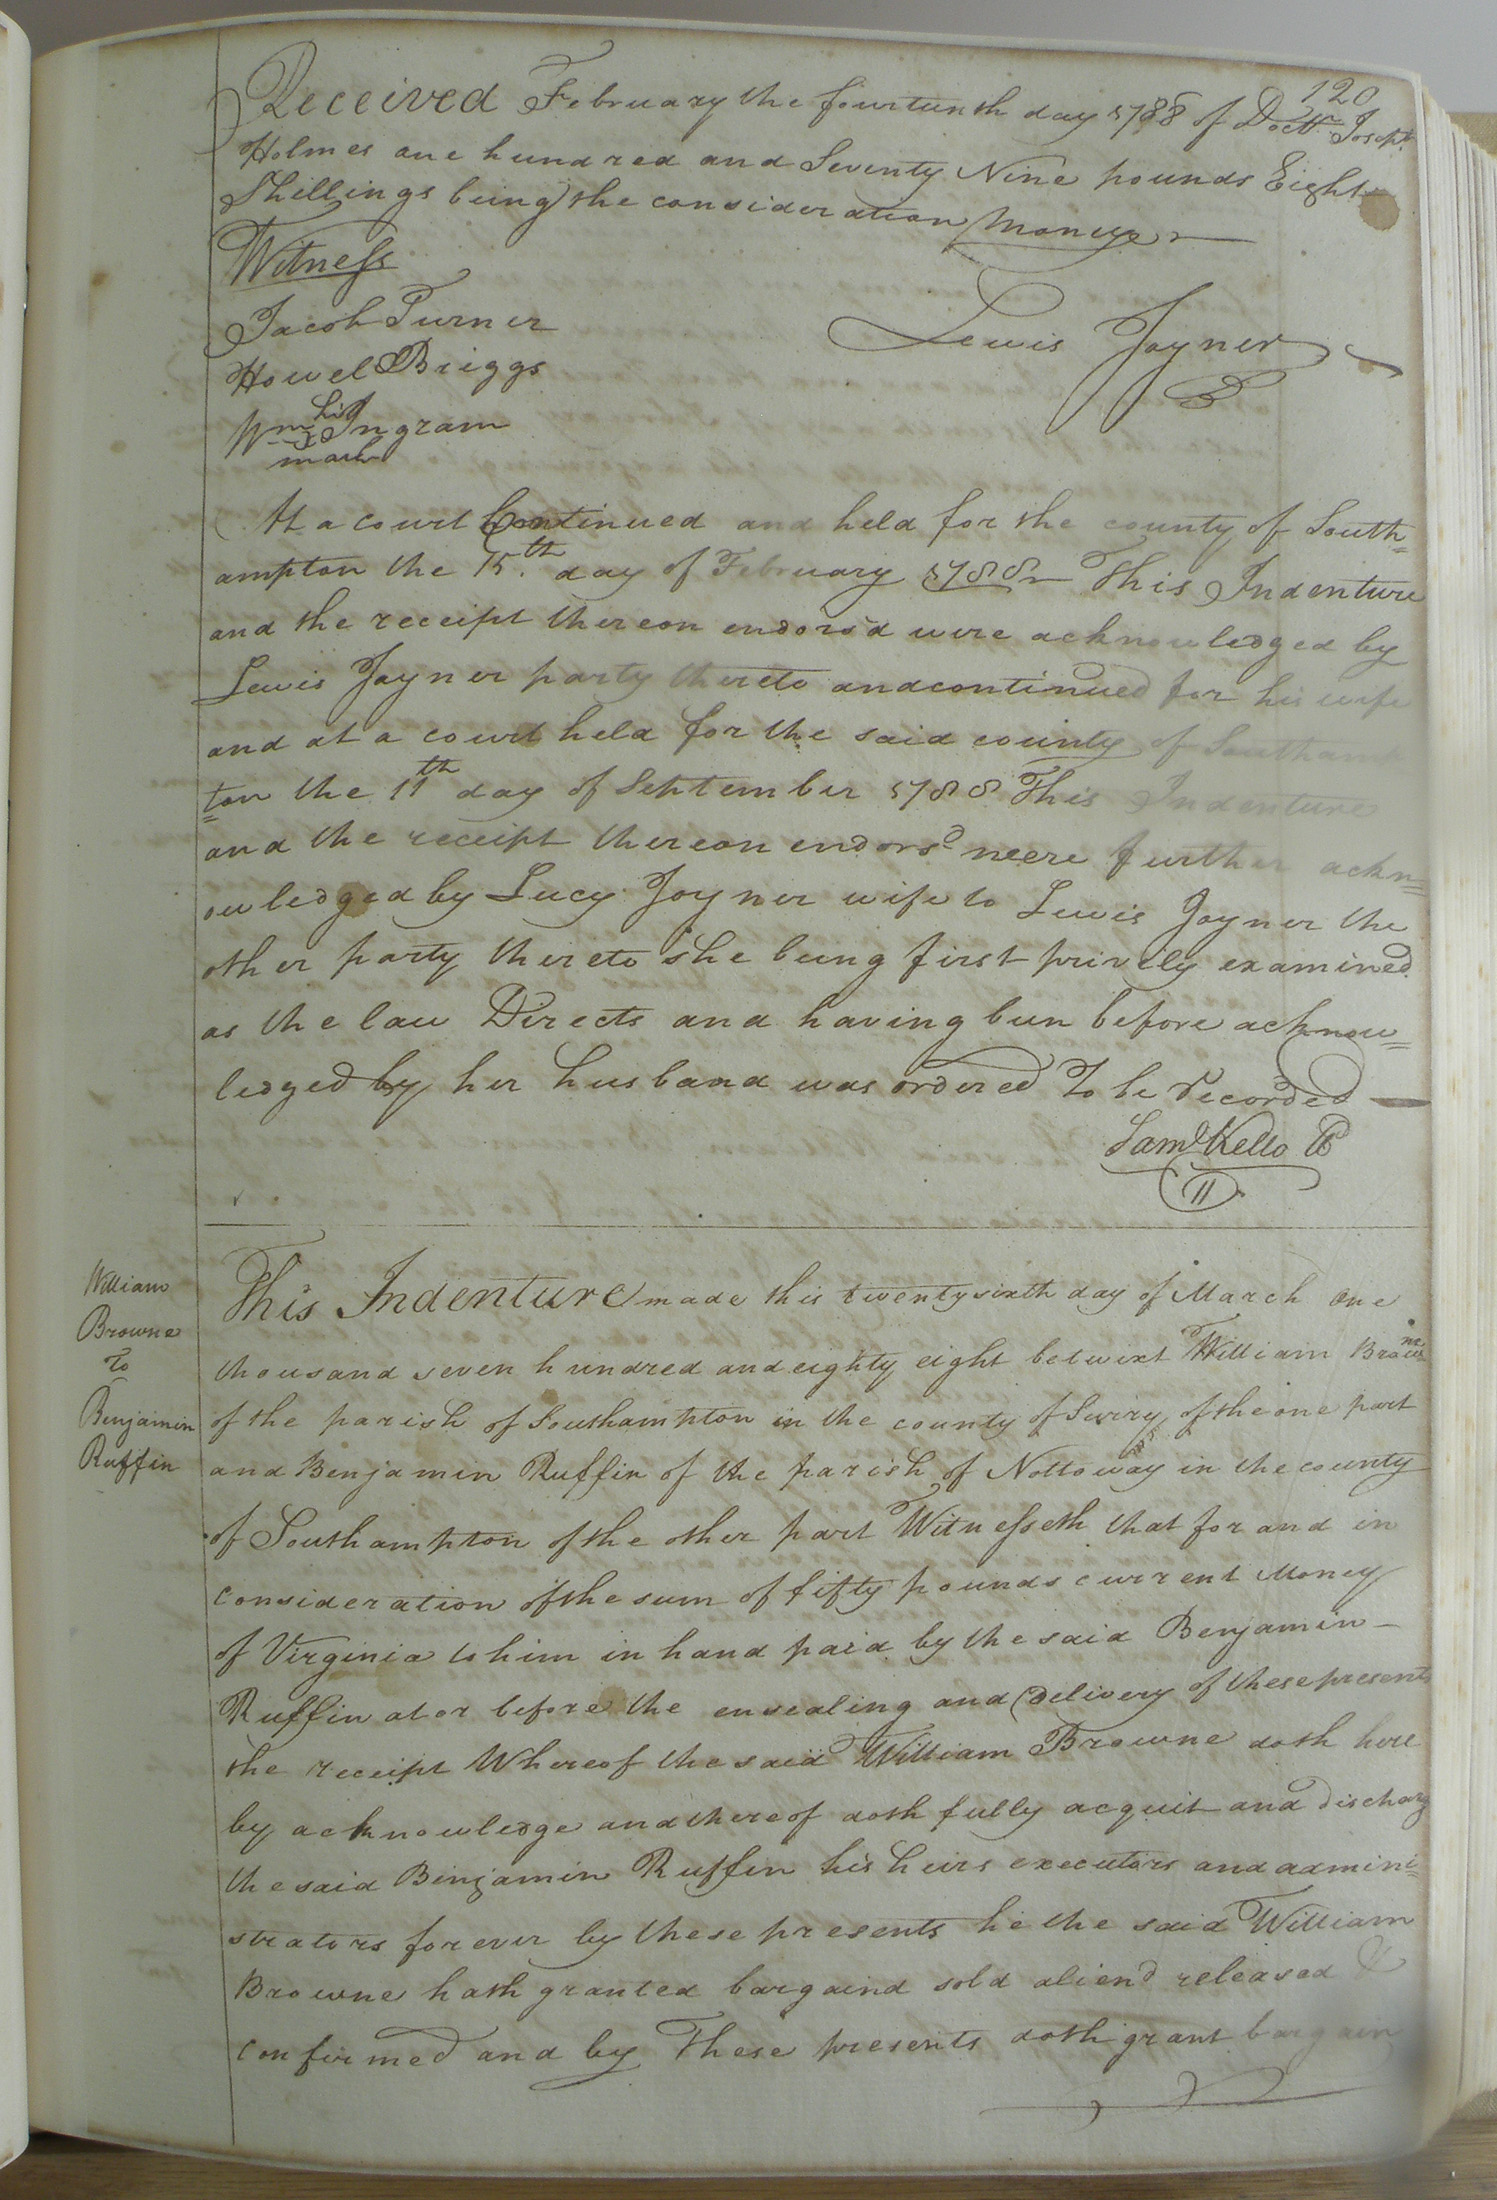 120
Received February the fourteenth day 1788 of Doctr. Joseph
Holmes one hundred and Seventy Nine pounds Eight
Shillings being the consideration Money
Witness
Jacob Turner
Lewis Joyner
Howel Briggs
his
Wm x Ingram
mark
At a court Continued and held for the county of South=
ampton the 15.th day of February 1788 This Indenture
and the receipt thereon endors'd were acknowledged by
Lewis Joyner party thereto and continued for his wife
and at a court held for the said county of Southamp
=ton the 11th day of September 1788 This Indenture
and the receipt thereon endorsd were further ackn=
owledged by Lucy Joyner wife to Lewis Joyner the
other party thereto she being first privily examined
as the law Directs and having been before acknow=
ledged by her husband was ordered To be recorded
Saml Kello CC
11
William
Browne
To
Benjamin
Ruffin
This Indenture made this twenty sixth day of March One
thousand seven hundred and eighty eight betwixt William Browne
of the parish of Southampton in the county of Surry of the one part
and Benjamin Ruffin of the parish of Nottoway in the county
of Southampton of the other part Witnesseth that for and in
consideration of the sum of fifty pounds current Money
of Virginia to him in hand paid by the said Benjamin
Ruffin at or before the ensealing and delivery of these presents
the receipt Whereof the said William Browne doth here
by acknowledge and thereof doth fully acquit and discharg
the said Binjamin Ruffin his heirs executors and admini=
strators forever by these presents he the said William
Browne hath granted bargaind sold aliend released &
confirmed and by These presents doth grant bargain